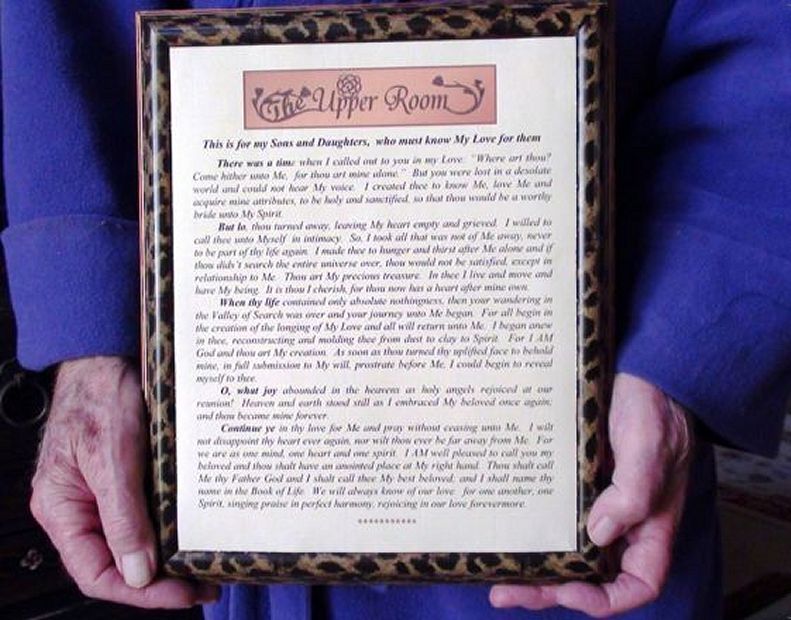 The Upper Room
This is for my Sons and Daughters, who must know My Love for them
There was a time when I called out to you in my Love. "Where art thou?
Come hither unto Me, for thou art mine alone." But you were lost in a desolate
world and could not hear My voice. I created thee to know Me, love Me and
acquire mine attributes, to be holy and sanctified, so that thou would be a worthy
bride unto My Spirit.
But lo, thou turned away, leaving My heart empty and grieved. I willed to
call thee unto Myself in intimacy. So, I took all that was not of Me away, never
to be part of thy life again. I made thee to hunger and thirst after Me alone and if
thou didn't search the entire universe over, thou would not be satisfied, except in
relationship to Me. Thou art My precious treasure. In thee I live and move and
have My being. It is thou I cherish, for thou now has a heart after mine own.
When thy life contained only absolute nothingness, then your wandering in
the Valley of Search was over and your journey unto Me began. For all begin in
the creation of the longing of My Love and all will return unto Me. I began anew
in thee, reconstructing and molding thee from dust to clay to Spirit. For I AM
God and thou art My creation. As soon as thou turned thy uplifted face to behold
mine, in full submission to My will, prostrate before Me, I could begin to reveal
myself to thee.
O, what joy abounded in the heavens as holy angels rejoiced at our
reunion! Heaven and earth stood still as I embraced My beloved once again;
and thou became mine forever.
Continue ye in thy love for Me and pray without ceasing unto Me. I wilt
not disappoint thy heart ever again, nor wilt thou ever be far away from Me. For
we are as one mind, one heart and one spirit. I AM well pleased to call you my
beloved and thou shalt have an anointed place at My right hand. Thou shalt call
Me thy Father God and I shalt call thee My best beloved, and I shall name thy
name in the Book of Life. We will always know of our love for one another, one
Spirit, singing praise in perfect harmony, rejoicing in our love forevermore.
***********